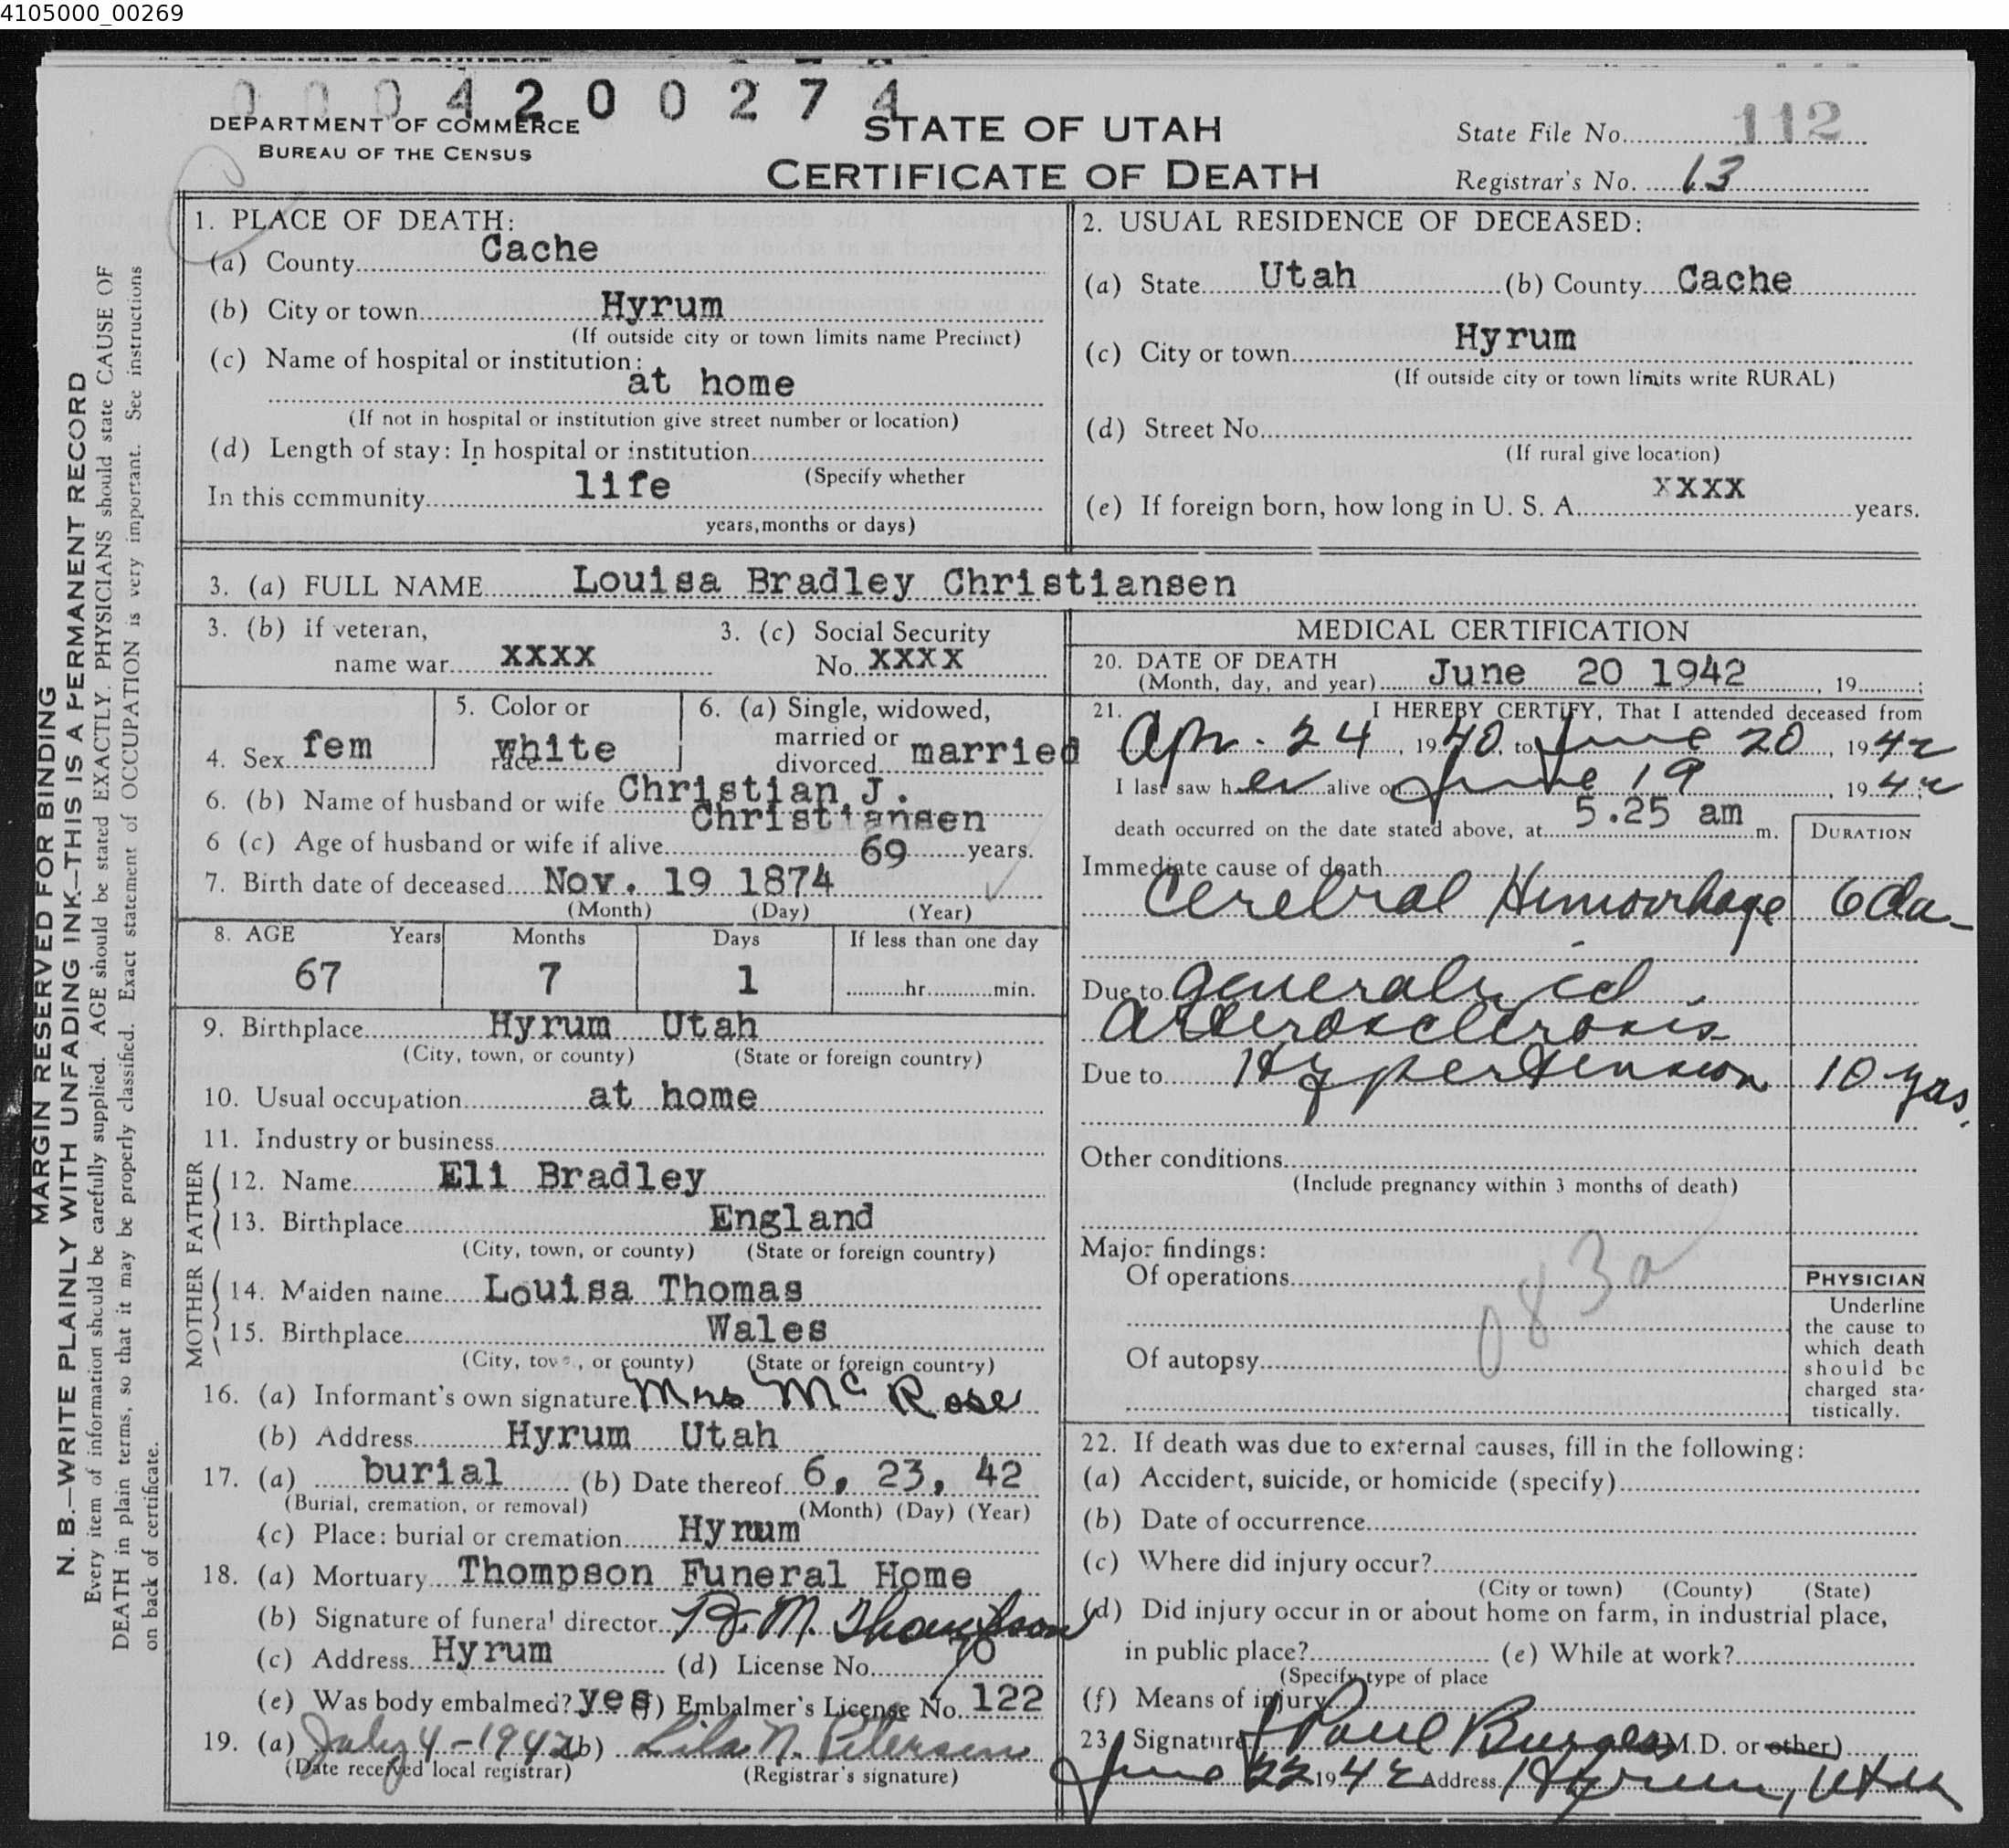 4105000_00269
0004200274
DEPARTMENT OF COMMERCE
BUREAU OF THE CENSUS
STATE OF UTAH
CERTIFICATE OF DEATH
State File No. 112
Registrar's No. 13
MARGIN RESERVED FOR BINDING
N. B.—WRITE PLAINLY WITH UNFADING INK—THIS IS A PERMANENT RECORD
Every item of information should be carefully supplied. AGE should be stated EXACTLY. PHYSICIANS should state CAUSE OF
DEATH in plain terms, so that it may be properly classified. Exact statement of OCCUPATION is very important. See instructions
on back of certificate.
1. PLACE OF DEATH:
(a) County Cache
(b) City or town Hyrum
(If outside city or town limits name Precinct)
(c) Name of hospital or institution:
at home
(If not in hospital or institution give street number or location)
(d) Length of stay: In hospital or institution
(Specify whether
In this community life
years, months or days)
2. USUAL RESIDENCE OF DECEASED:
(a) State Utah (b) County Cache
(c) City or town Hyrum
(If outside city or town limits write RURAL)
(d) Street No.
(If rural give location)
(e) If foreign born, how long in U. S. A. XXXX years.
3. (a) FULL NAME Louisa Bradley Christiansen
3. (b) if veteran,
name war XXXX
3. (c) Social Security
No. XXXX
4. Sex fem
5. Color or
race white
6. (a) Single, widowed,
married or
divorced married
6. (b) Name of husband or wife Christian J.
Christiansen
6 (c) Age of husband or wife if alive 69 years.
7. Birth date of deceased Nov. 19 1874
(Month) (Day) (Year)
8. AGE Years Months Days If less than one day
67 7 1 hr. min.
9. Birthplace Hyrum Utah
(City, town, or county) (State or foreign country)
10. Usual occupation at home
11. Industry or business
FATHER
12. Name Eli Bradley
13. Birthplace England
(City, town, or county) (State or foreign country)
MOTHER
14. Maiden name Louisa Thomas
15. Birthplace Wales
(City, town, or county) (State or foreign country)
16. (a) Informant's own signature Mrs Mc Rose
(b) Address Hyrum Utah
17. (a) burial (b) Date thereof 6, 23, 42
(Burial, cremation, or removal) (Month) (Day) (Year)
(c) Place: burial or cremation Hyrum
18. (a) Mortuary Thompson Funeral Home
(b) Signature of funeral director M. Thompson
(c) Address Hyrum (d) License No. 70
(e) Was body embalmed? yes (f) Embalmer's License No. 122
19. (a) July 4 - 1942 (b) Lila N. Petersen
(Date received local registrar) (Registrar's signature)
MEDICAL CERTIFICATION
20. DATE OF DEATH
(Month, day, and year) June 20 1942, 19
21. I HEREBY CERTIFY, That I attended deceased from
Apr. 24, 1940, to June 20, 1942
I last saw her alive on June 19, 1942;
death occurred on the date stated above, at 5.25 am m.
DURATION
Immediate cause of death
Cerebral Himorrhage 6 da
Due to generalized
arterosclerosis
Due to Hypertension 10 yrs.
Other conditions
(Include pregnancy within 3 months of death)
Major findings:
Of operations
083a
Of autopsy
PHYSICIAN
Underline
the cause to
which death
should be
charged sta-
tistically.
22. If death was due to external causes, fill in the following:
(a) Accident, suicide, or homicide (specify)
(b) Date of occurrence
(c) Where did injury occur?
(City or town) (County) (State)
(d) Did injury occur in or about home on farm, in industrial place,
in public place? (e) While at work?
(Specify type of place
(f) Means of injury
23 Signature J Paul Burgess M.D. or other)
June 22 1942 Address Hyrum, Utah